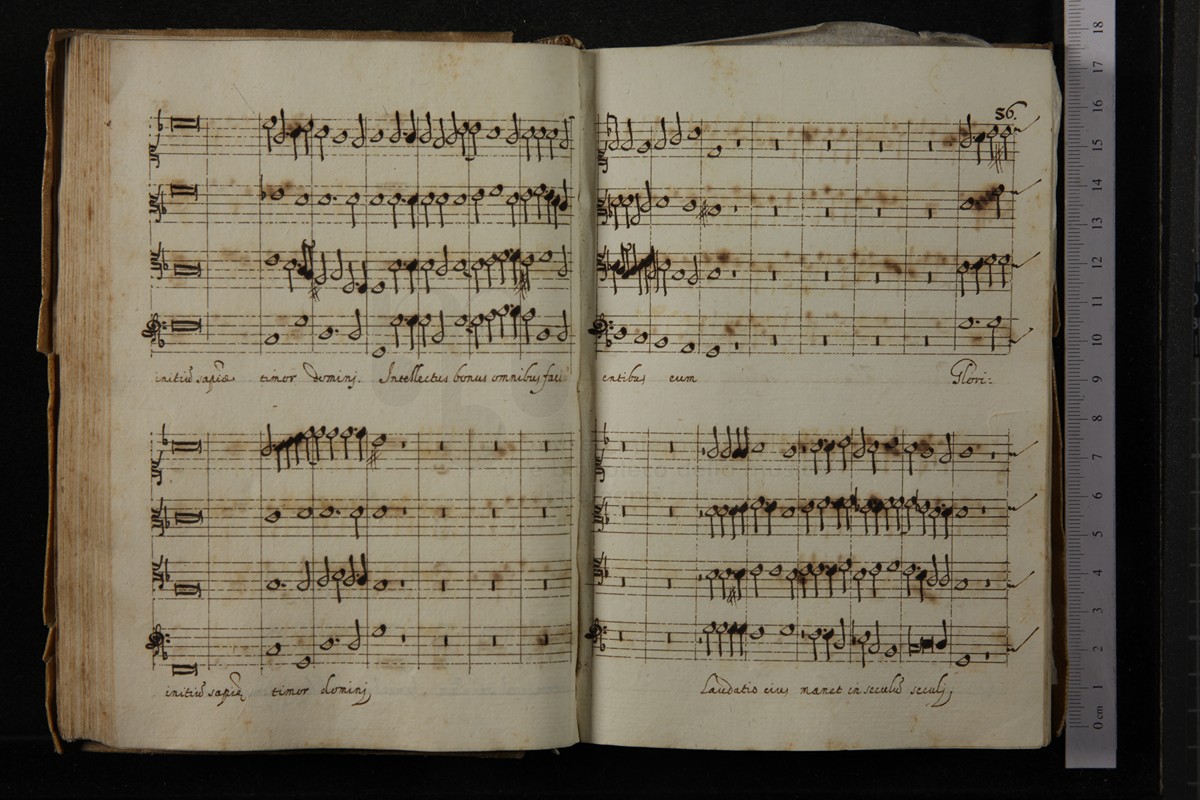 56.
initiū sapiæ timor Dominj. Intellectus bonus omnibus faci entibus eum Glori:
initiū sapiæ timor dominj Laudatio eius manet in seculū seculj,
18
17
16
15
14
13
12
11
10
9
8
7
6
5
4
3
2
1
0 cm